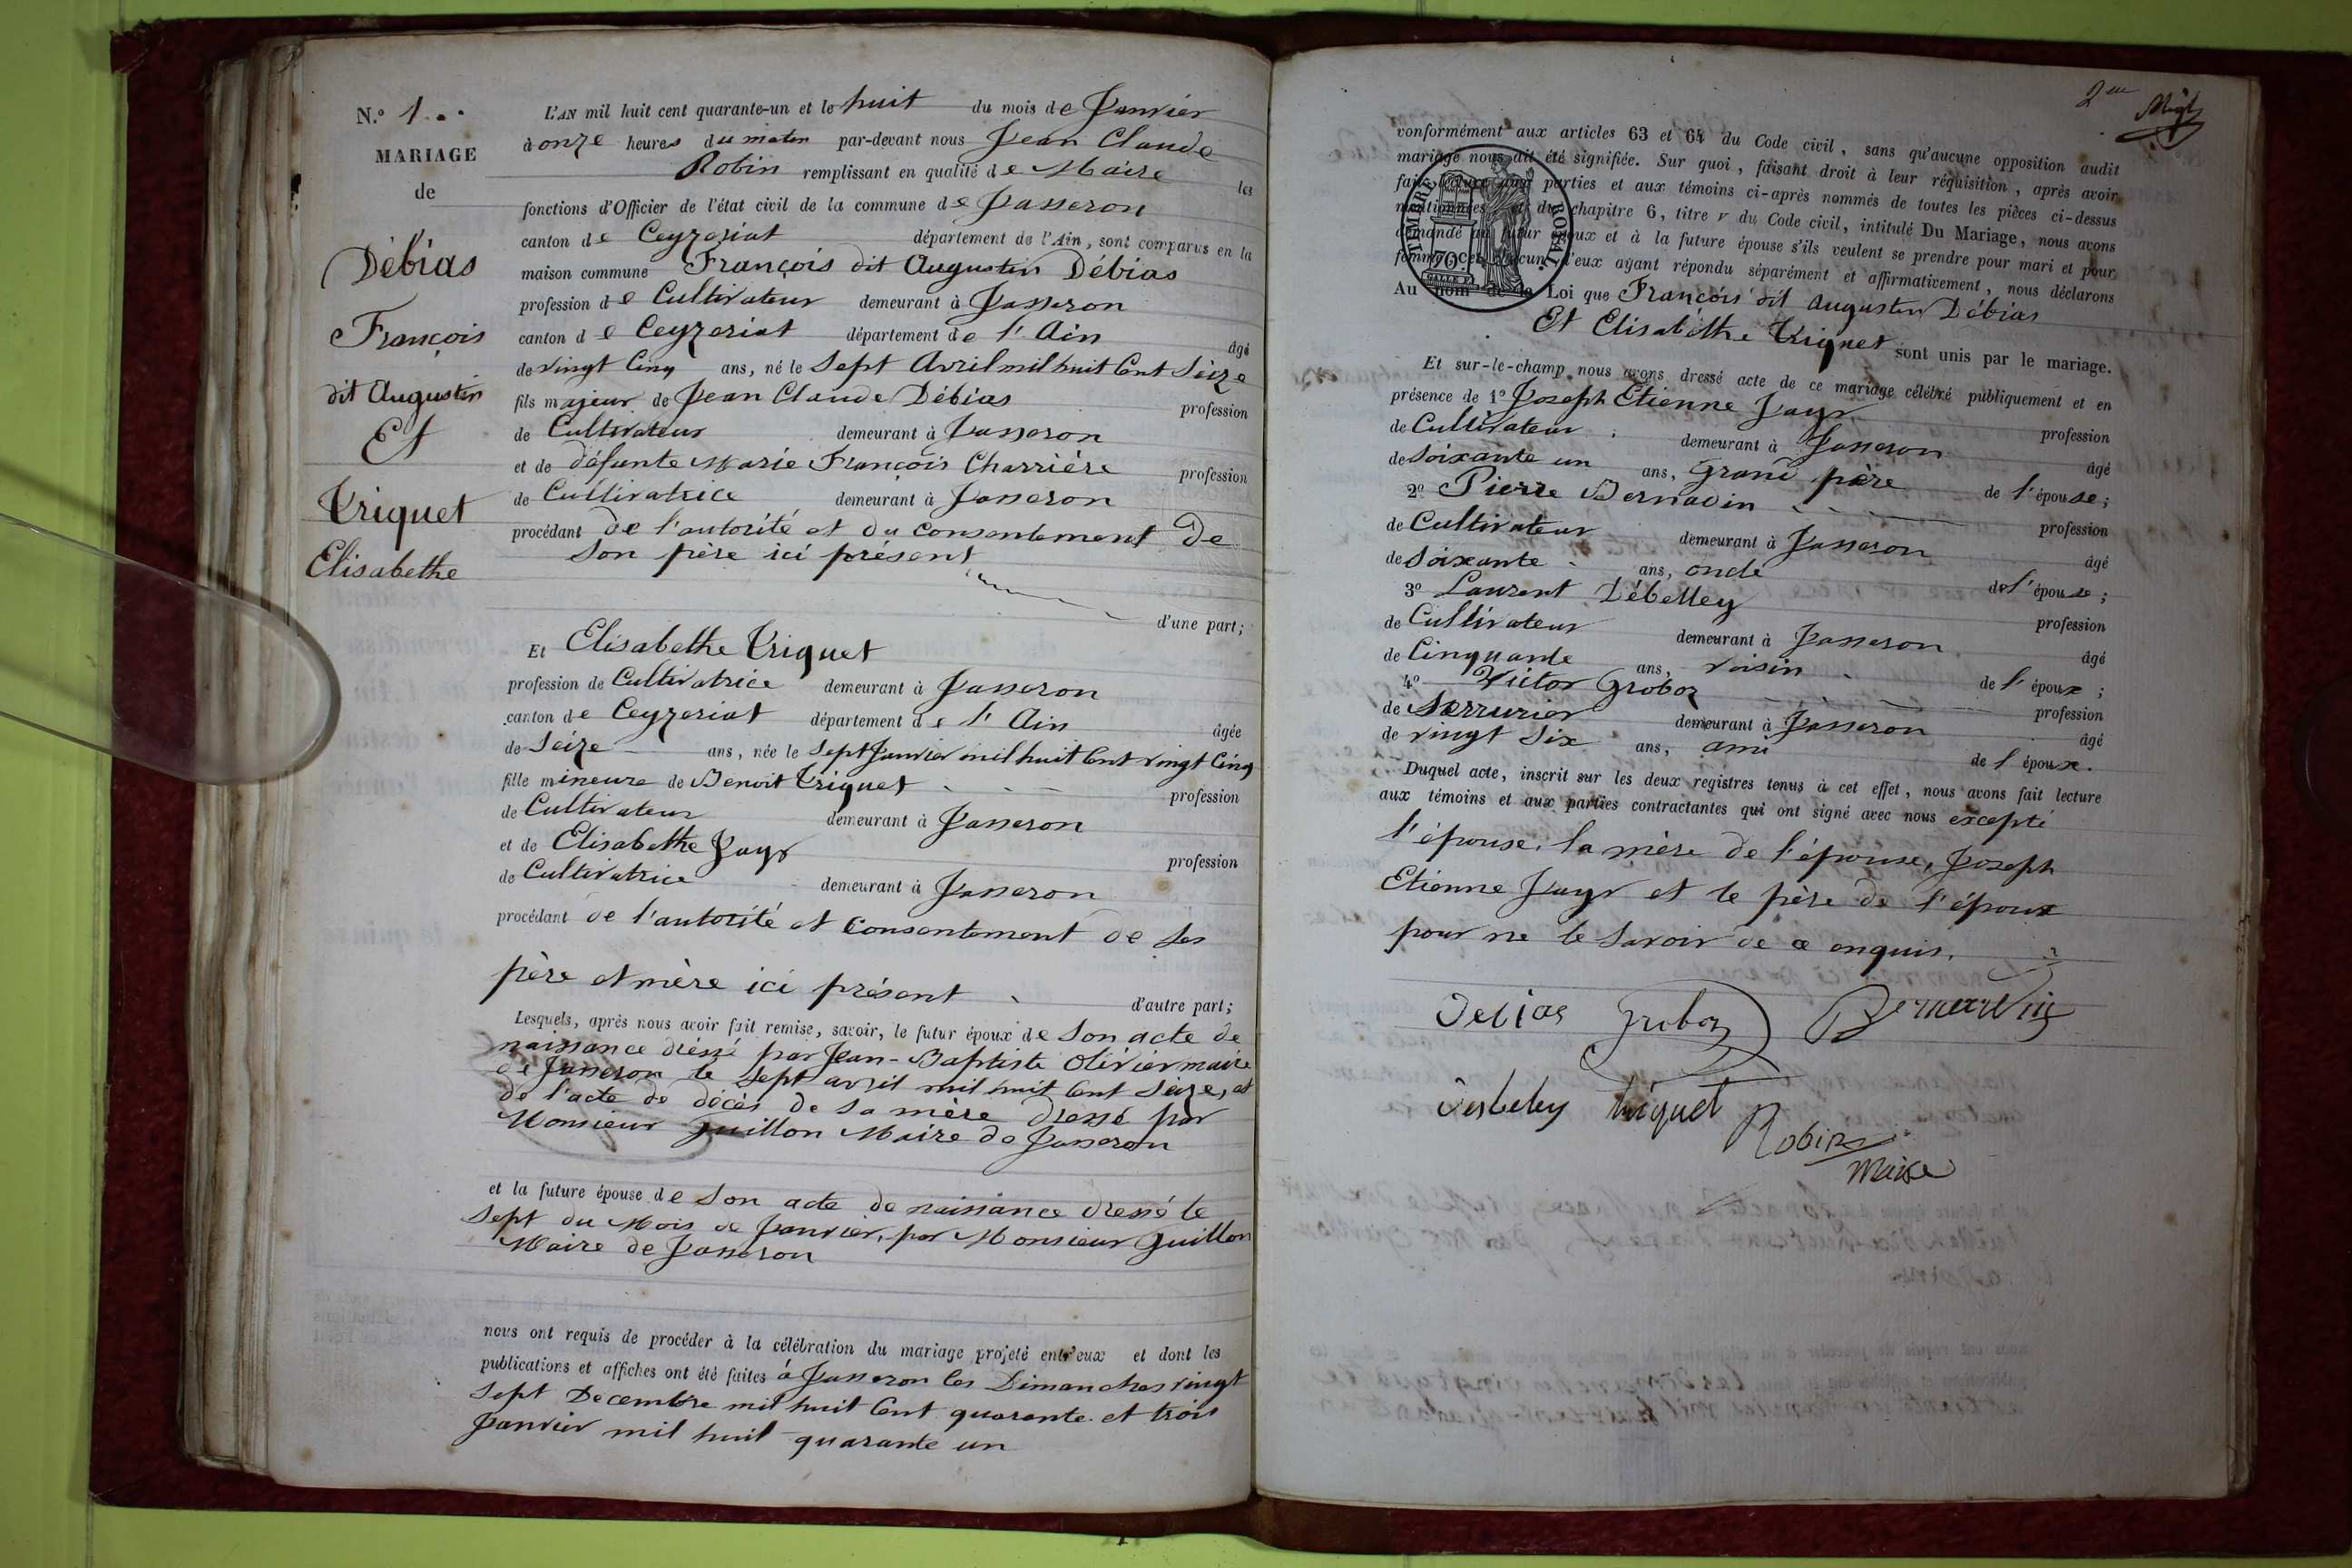 N.o 1..
MARIAGE
de
Débias
François
dit Augustin
Et
Triquet
Elisabethe
L'AN mil huit cent quarante-un et le huit du mois de Janvier
à onze heures du matin par-devant nous Jean Claude
Robin remplissant en qualité de Maire les
fonctions d'Officier de l'état civil de la commune de Jasseron
canton de Ceyzeriat département de l'Ain, sont comparus en la
maison commune François dit Augustin Débias
profession de Cultivateur demeurant à Jasseron
canton de Ceyzeriat département de l'Ain âgé
de vingt Cinq ans, né le Sept Avril mil huit Cent Seize
fils majeur de Jean Claude Débias profession
de Cultivateur demeurant à Jasseron
et de défunte Marie François Charrière profession
de Cultivatrice demeurant à Jasseron
procédant de l'autorité et du consentement De
son père ici présent
d'une part;
Et Elisabethe Triquet
profession de Cultivatrice demeurant à Jasseron
canton de Ceyzeriat département de l'Ain âgée
de Seize ans, née le Sept Janvier mil huit Cent vingt Cinq
fille mineure de Benoit Triquet profession
de Cultivateur demeurant à Jasseron
et de Elisabethe Jayr profession
de Cultivatrice demeurant à Jasseron
procédant de l'autorité et consentement de ses
père et mère ici présent d'autre part;
Lesquels, après nous avoir fait remise, savoir, le futur époux de Son acte de
naissance dressé par Jean-Baptiste Olivier maire
de Jasseron le Sept avril mil huit Cent Seize, et
de l'acte de décès de sa mère dressé par
Monsieur Guillon Maire de Jasseron
et la future épouse de Son acte de naissance dressé le
Sept du Mois de Janvier, par Monsieur Guillon
Maire de Jasseron
nous ont requis de procéder à la célébration du mariage projeté entr'eux et dont les
publications et affiches ont été faites à Jasseron les Dimanches vingt
Sept Decembre mil huit Cent quarante et trois
Janvier mil huit quarante un
2me
conformément aux articles 63 et 64 du Code civil, sans qu'aucune opposition audit
mariage nous ait été signifiée. Sur quoi, faisant droit à leur réquisition, après avoir
fait lecture aux parties et aux témoins ci-après nommés de toutes les pièces ci-dessus
mentionnées et du chapitre 6, titre v du Code civil, intitulé Du Mariage, nous avons
demandé au futur époux et à la future épouse s'ils veulent se prendre pour mari et pour
femme. Ces chacun d'eux ayant répondu séparément et affirmativement, nous déclarons
Au nom de la Loi que François dit Augustin Débias
Et Elisabethe Triquet sont unis par le mariage.
Et sur-le-champ nous avons dressé acte de ce mariage célébré publiquement et en
présence de 1o Joseph Etienne Jayr profession
de Cultivateur demeurant à Jasseron âgé
de Soixante un ans, Grand père de l'épouse;
2o Pierre Bernadin profession
de Cultivateur demeurant à Jasseron âgé
de Soixante ans, oncle de l'épouse;
3o Laurent Débelley profession
de Cultivateur demeurant à Jasseron âgé
de Cinquante ans, voisin de l'époux;
4o Victor Groboz profession
de Serrurier demeurant à Jasseron âgé
de vingt Six ans, ami de l'époux.
Duquel acte, inscrit sur les deux registres tenus à cet effet, nous avons fait lecture
aux témoins et aux parties contractantes qui ont signé avec nous excepté
l'épouse, la mère de l'épouse, Joseph
Etienne Jayr et le père de l'époux
pour ne le savoir de ce enquis.
Debias Groboz Bernardin
Desbeley triquet
Robin
Maire
TIMBRE ROYAL